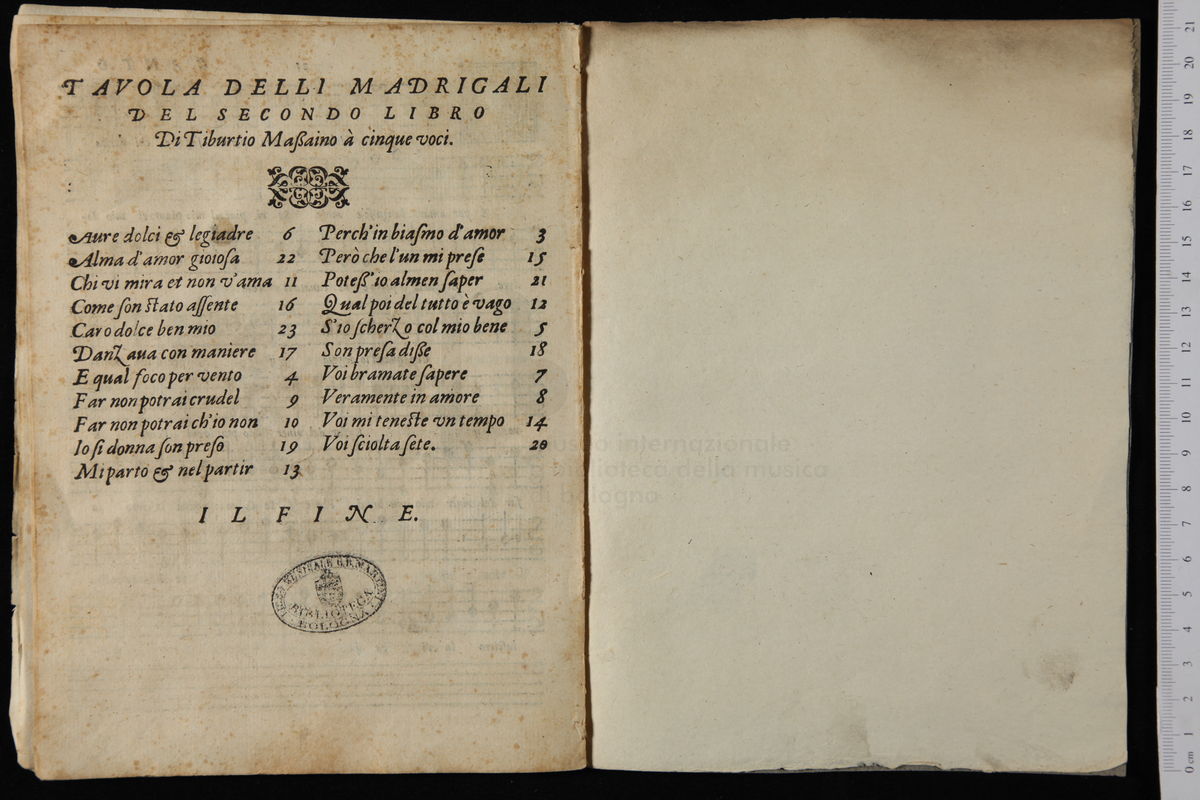 TAVOLA DELLI MADRIGALI
DEL SECONDO LIBRO
Di Tiburtio Maßaino à cinque voci.
Aure dolci & legiadre 6
Alma d'amor gioioſa 22
Chi vi mira et non v'ama 11
Come ſon ſtato aſſente 16
Caro dolce ben mio 23
Danzaua con maniere 17
E qual foco per vento 4
Far non potrai crudel 9
Far non potrai ch'io non 10
Io ſi donna ſon preſo 19
Mi parto & nel partir 13
Perch'in biaſmo d'amor 3
Però che l'un mi preſe 15
Poteß'io almen ſaper 21
Qual poi del tutto è vago 12
S'io ſcherzo col mio bene 5
Son preſa diße 18
Voi bramate ſapere 7
Veramente in amore 8
Voi mi teneſte vn tempo 14
Voi ſciolta ſete. 20
IL FINE.
BIBLIOTECA
BOLOGNA
museo internazionale
biblioteca della musica
di bologna
0 cm 1 2 3 4 5 6 7 8 9 10 11 12 13 14 15 16 17 18 19 20 21